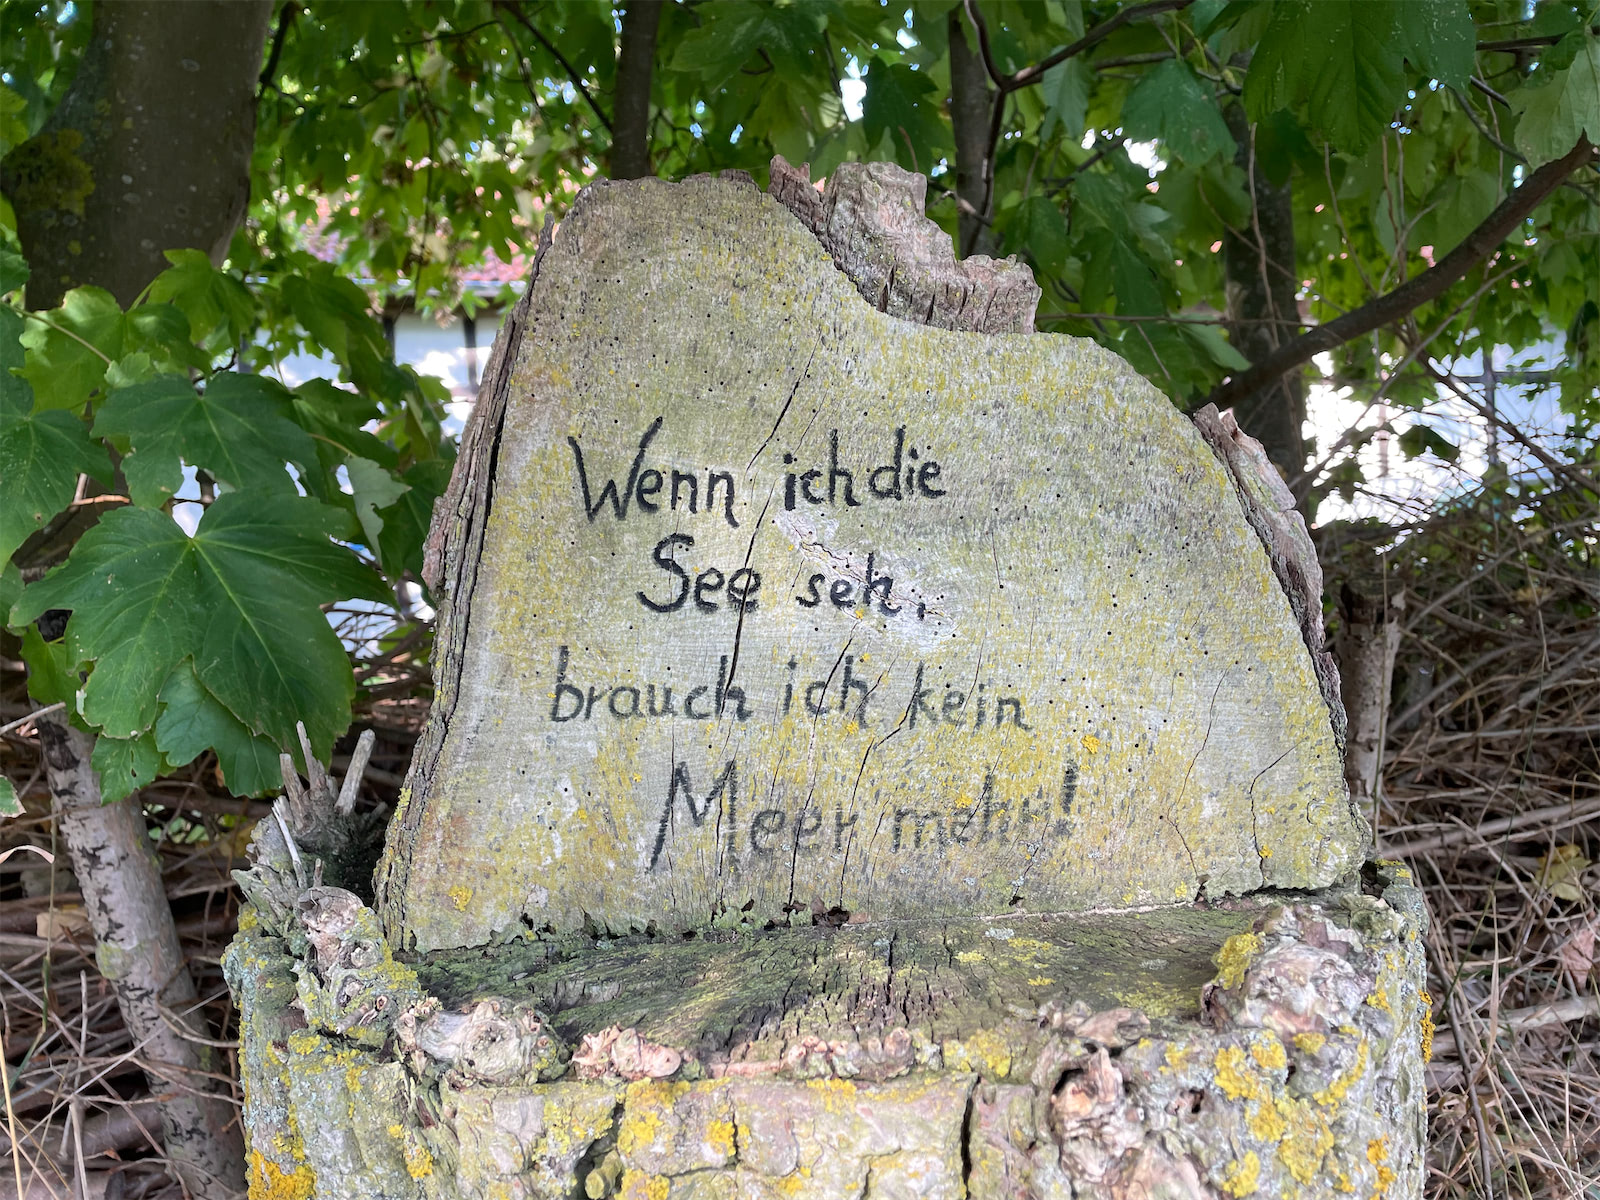 Wenn ich die
See seh,
brauch ich kein
Meer mehr!